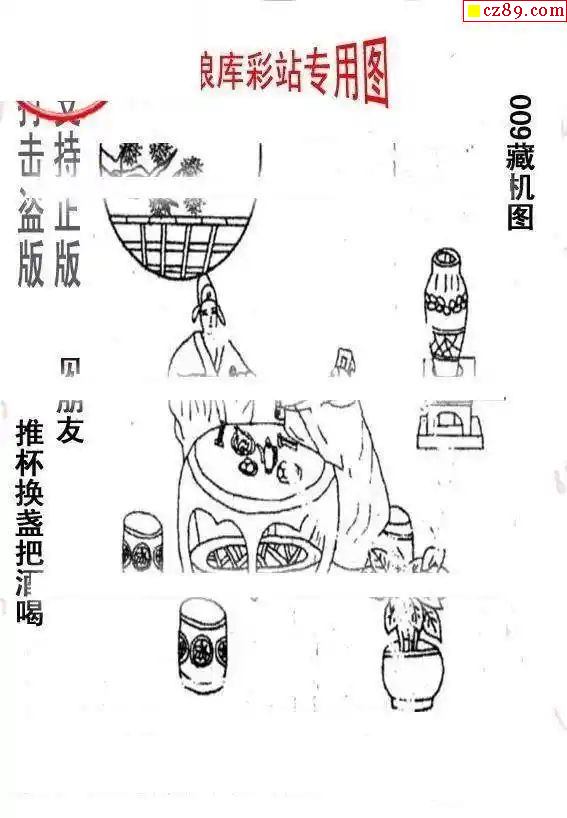 cz89.com
库彩站专用图
009藏机图
支持正版
打击盗版
见朋友
推杯换盏把酒喝